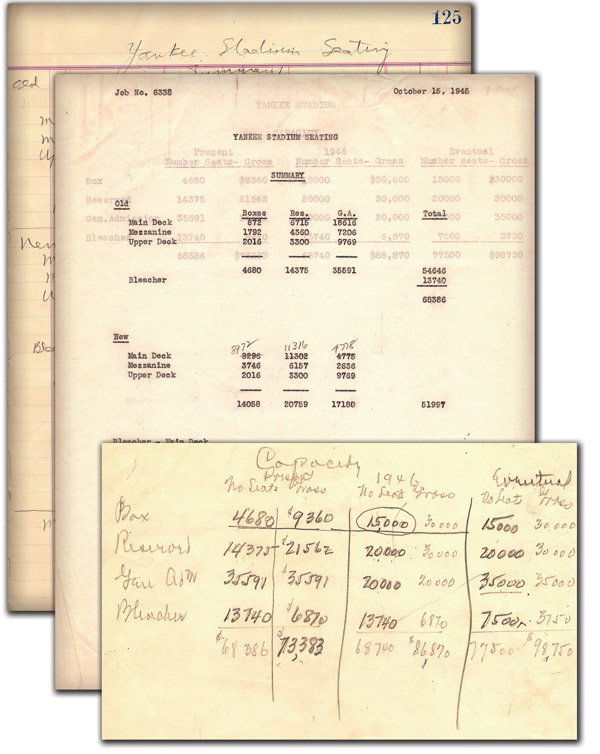 125
Yankee Stadium Seating
Summary
Old
New
Job No. 6338 October 15, 1945
YANKEE STADIUM
YANKEE STADIUM SEATING
CAPACITY
Present 1946 Eventual
Number Seats- Gross Number Seats- Gross Number seats- Gross
SUMMARY
Box 4680 $9360 15000 $30,000 15000 $30000
Reserved 14375 21562 20000 30,000 20000 30000
Gen.Admission 35591 20,000 35000
Bleacher 13740 13740 6,870 7500 3750
68386 68740 $86,870 77500 $98750
Old
Boxes Res. G.A. Total
Main Deck 872 6715 18616
Mezzanine 1792 4360 7206
Upper Deck 2016 3300 9769
4680 14375 35591 54646
Bleacher 13740
68386
New
8972 11316 4778
Main Deck 8296 11302 4775
Mezzanine 3746 6157 2636
Upper Deck 2016 3300 9769
14058 20759 17180 51997
Bleacher - Main Deck
Capacity
Present 1946 Eventual
No Seats Gross No Seats Gross No Seats Gross
Box 4680 $9360 15000 30000 15000 30000
Reserved 14375 $21562 20000 30000 20000 30000
Gen Adm 35591 $35591 20000 20000 35000 35000
Bleacher 13740 $6870 13740 6870 7500 3750
68386 $73383 68740 $86870 77500 $98750